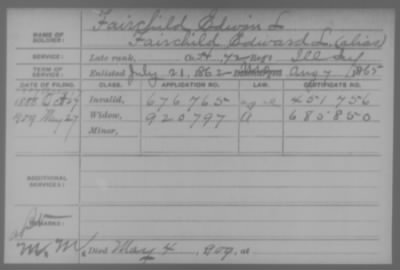 Fairchild Edwin L
NAME OF SOLDIER: Fairchild Edward L. (alias)
SERVICE: Late rank, Co. H, 72 Reg't Ill Inf
TERM OF SERVICE: Enlisted July 21, 1862 Discharged Aug 7, 1865
DATE OF FILING. CLASS. APPLICATION NO. LAW. CERTIFICATE NO.
1888 Oct 27 Invalid, 676.765 451.756
1909 May 27 Widow, 920797 685.850
Minor,
ADDITIONAL SERVICES:
REMARKS:
Died May 4, 1909, at